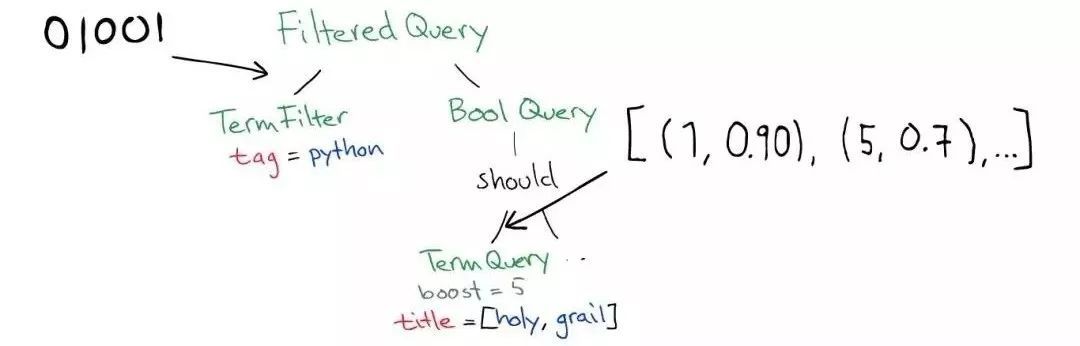 01001
Filtered Query
TermFilter
tag = python
Bool Query
should
[(1, 0.90), (5, 0.7),...]
TermQuery ..
boost = 5
title = [holy, grail]